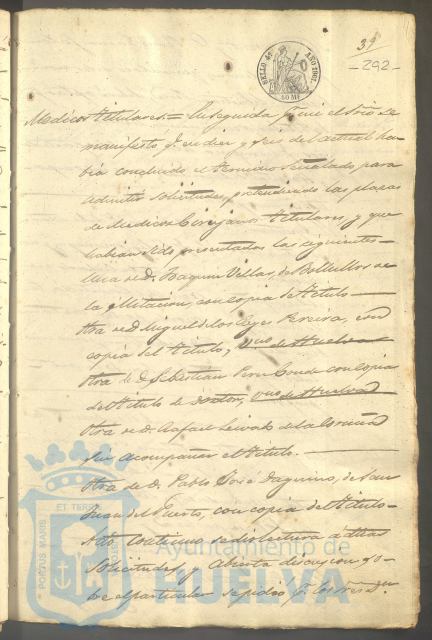 SELLO 4º AÑO 1861.
50 Mº
39
-292-
Medicos titulares = En seguida por mi el Srio se
manifestó q. en diez y seis del actual ha-
bía concluido el termino señalado para
admitir solicitudes, pretendiendo las plazas
de Medicos Cirujanos titulares, y que
habian sido presentadas las siguientes
Una de D. Joaquin Villar, de Bollullos de
la Mitacion, con copia de titulo
Otra de D. Miguel de los Reyes Pereira, con
copia del titulo, vno de Huelva
Otra de D. Sebastian Perez Conde con copia
del titulo de Doctor, vno de Huelva
Otra de D. Rafael de la Coruña
sin acompañar el titulo.
Otra de D. Pablo José Daquino, de San
Juan del Puerto, con copia del titulo
Acto continuo se dio lectura a dhas
solicitudes y abierta discusion so-
bre el particular se pidió p. los Sres
PORTUS MARIS ET TERRÆ CUSTODIA
Ayuntamiento de
HUELVA